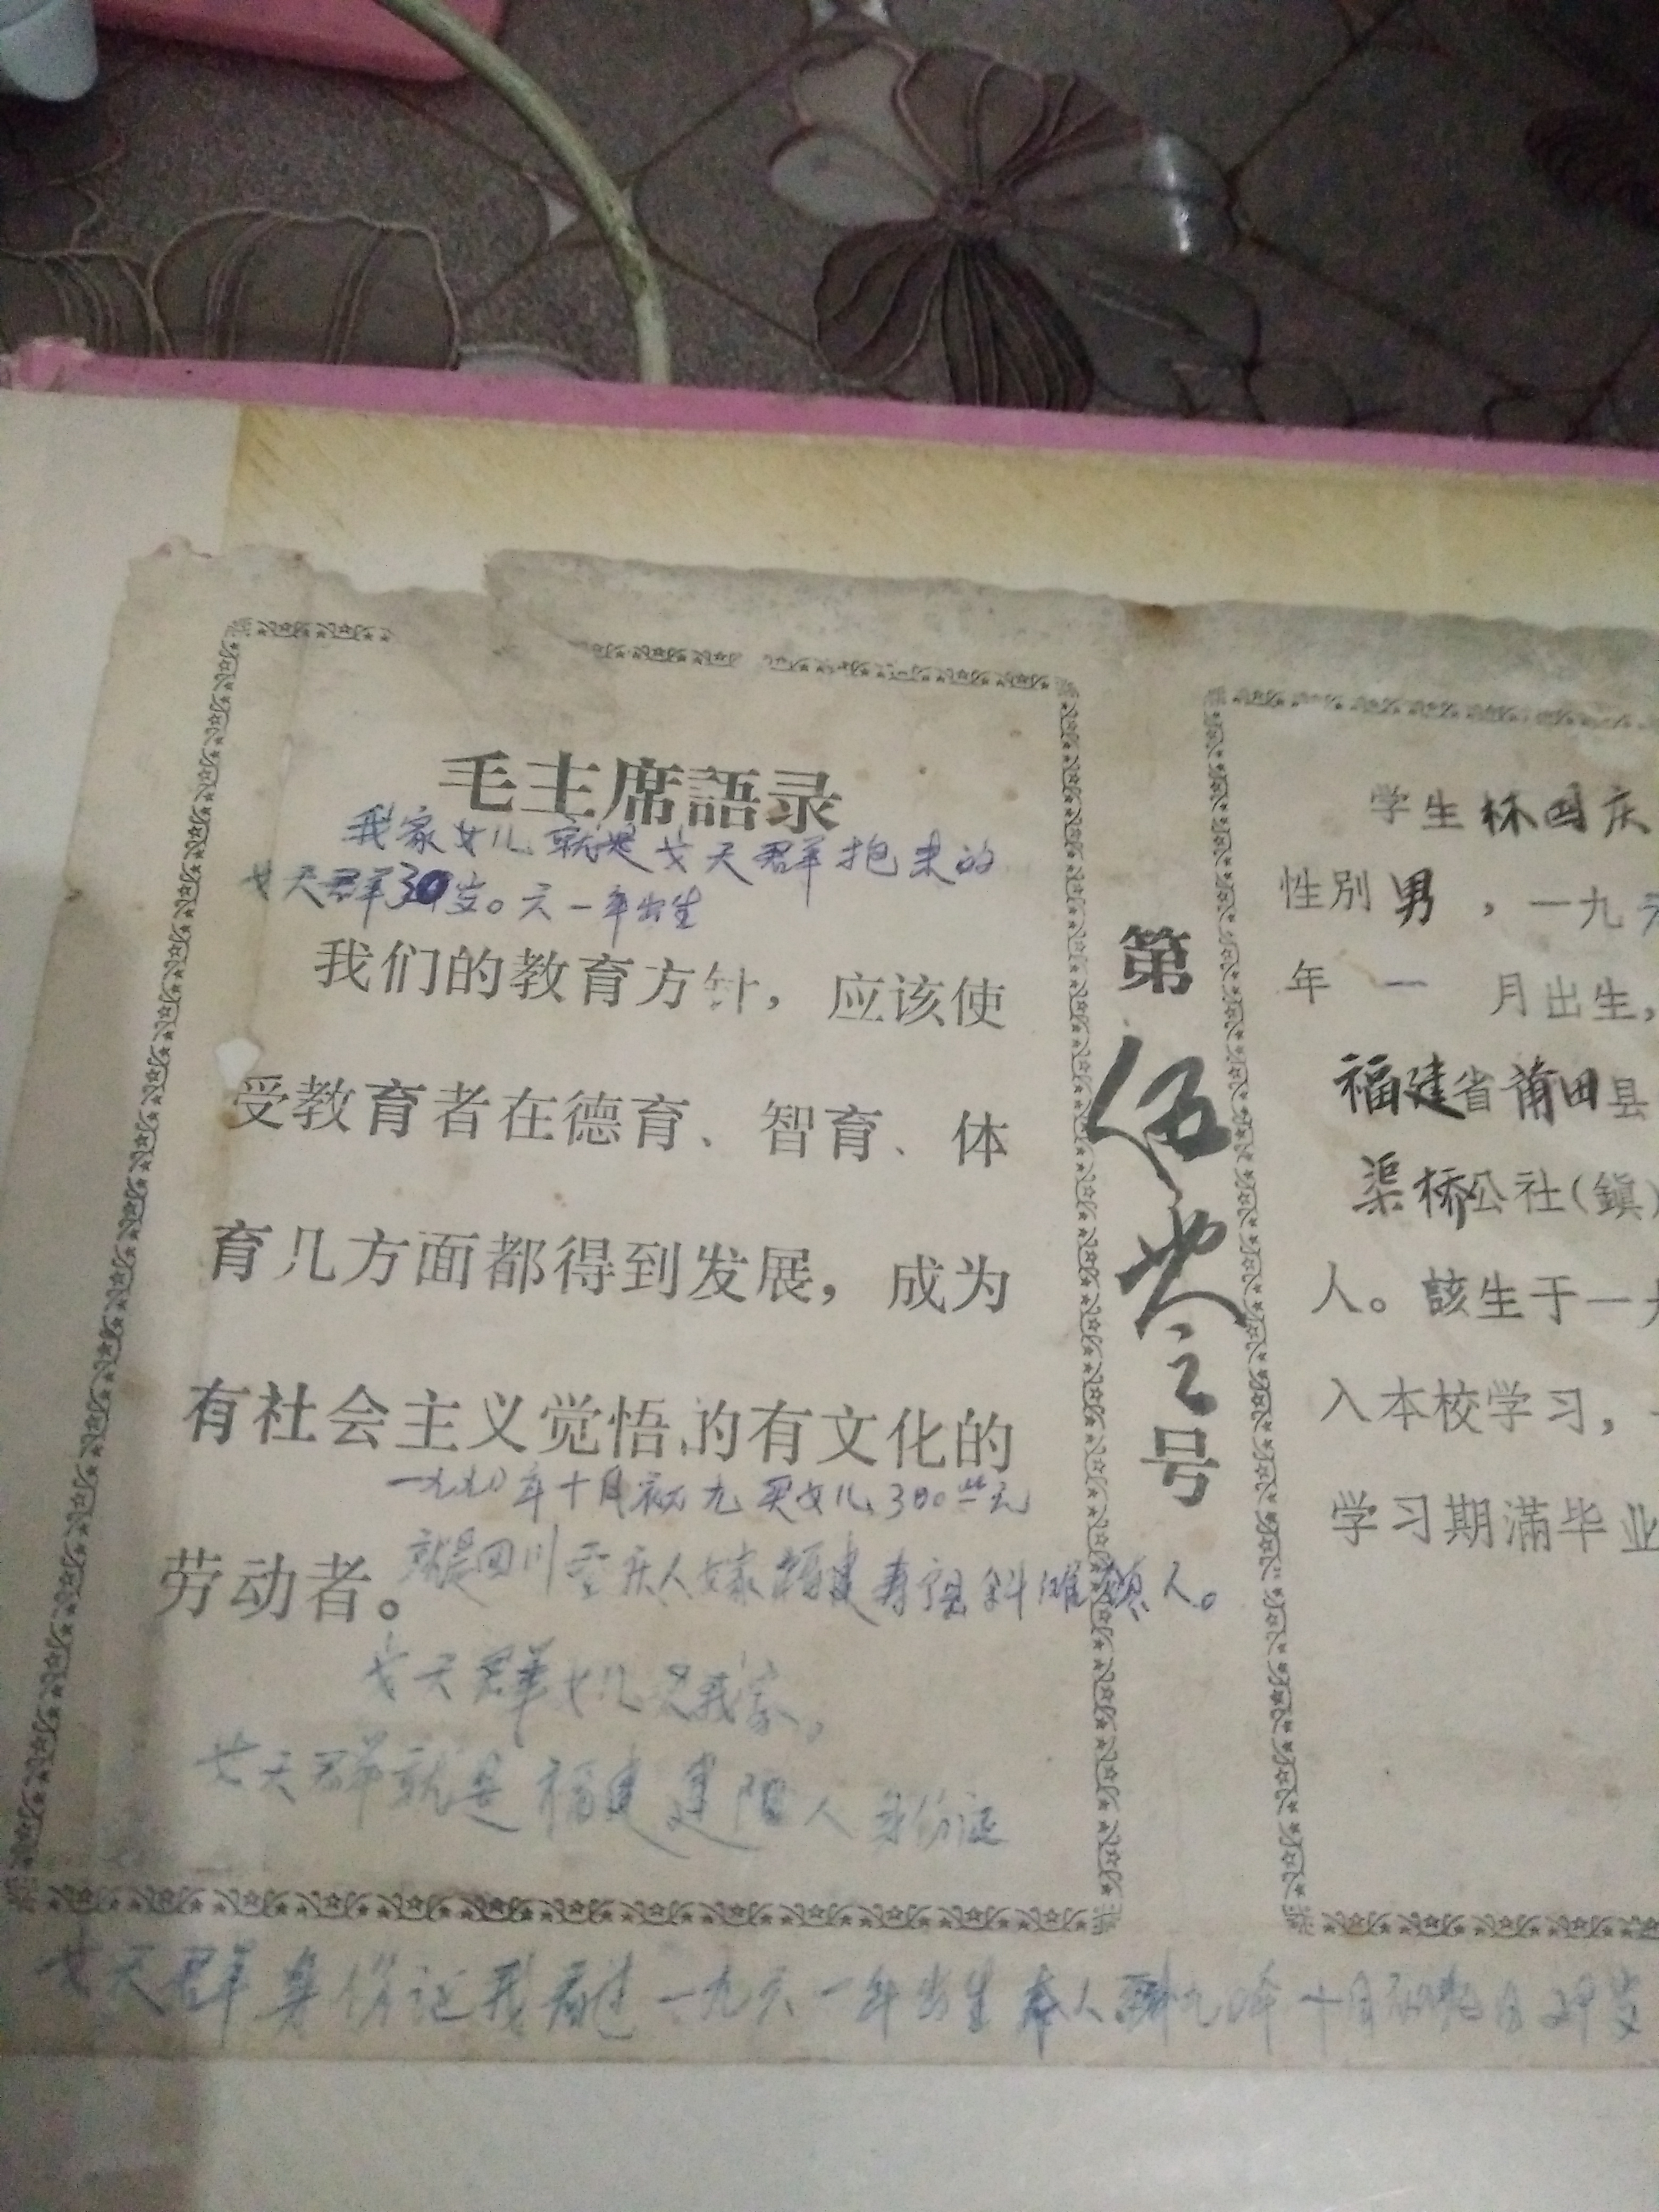 毛主席語录
我家女儿就是女天群抱来的
女天群30岁。六一年出生
我们的教育方针，应该使
受教育者在德育、智育、体
育几方面都得到发展，成为
有社会主义觉悟的有文化的
一九九〇年十月初九买女儿300元
劳动者。
就是四川重庆人嫁福建寿
人。
女天群女儿 我家。
女天群就是福建建阳人身份证
女天群身份证我看过一九六一年出生本人 九 年十月
岁
第
伍
之
号
学生林国庆
性别男，一九
年 一 月出生，
福建省莆田县
渠桥公社(鎮)
人。該生于一九
入本校学习，
学习期滿毕业